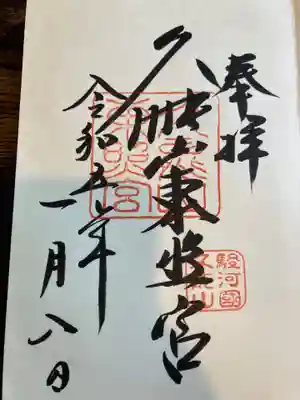 奉拝
久能山東照宮
令和五年
一月八日
東照宮
駿河國
久能山